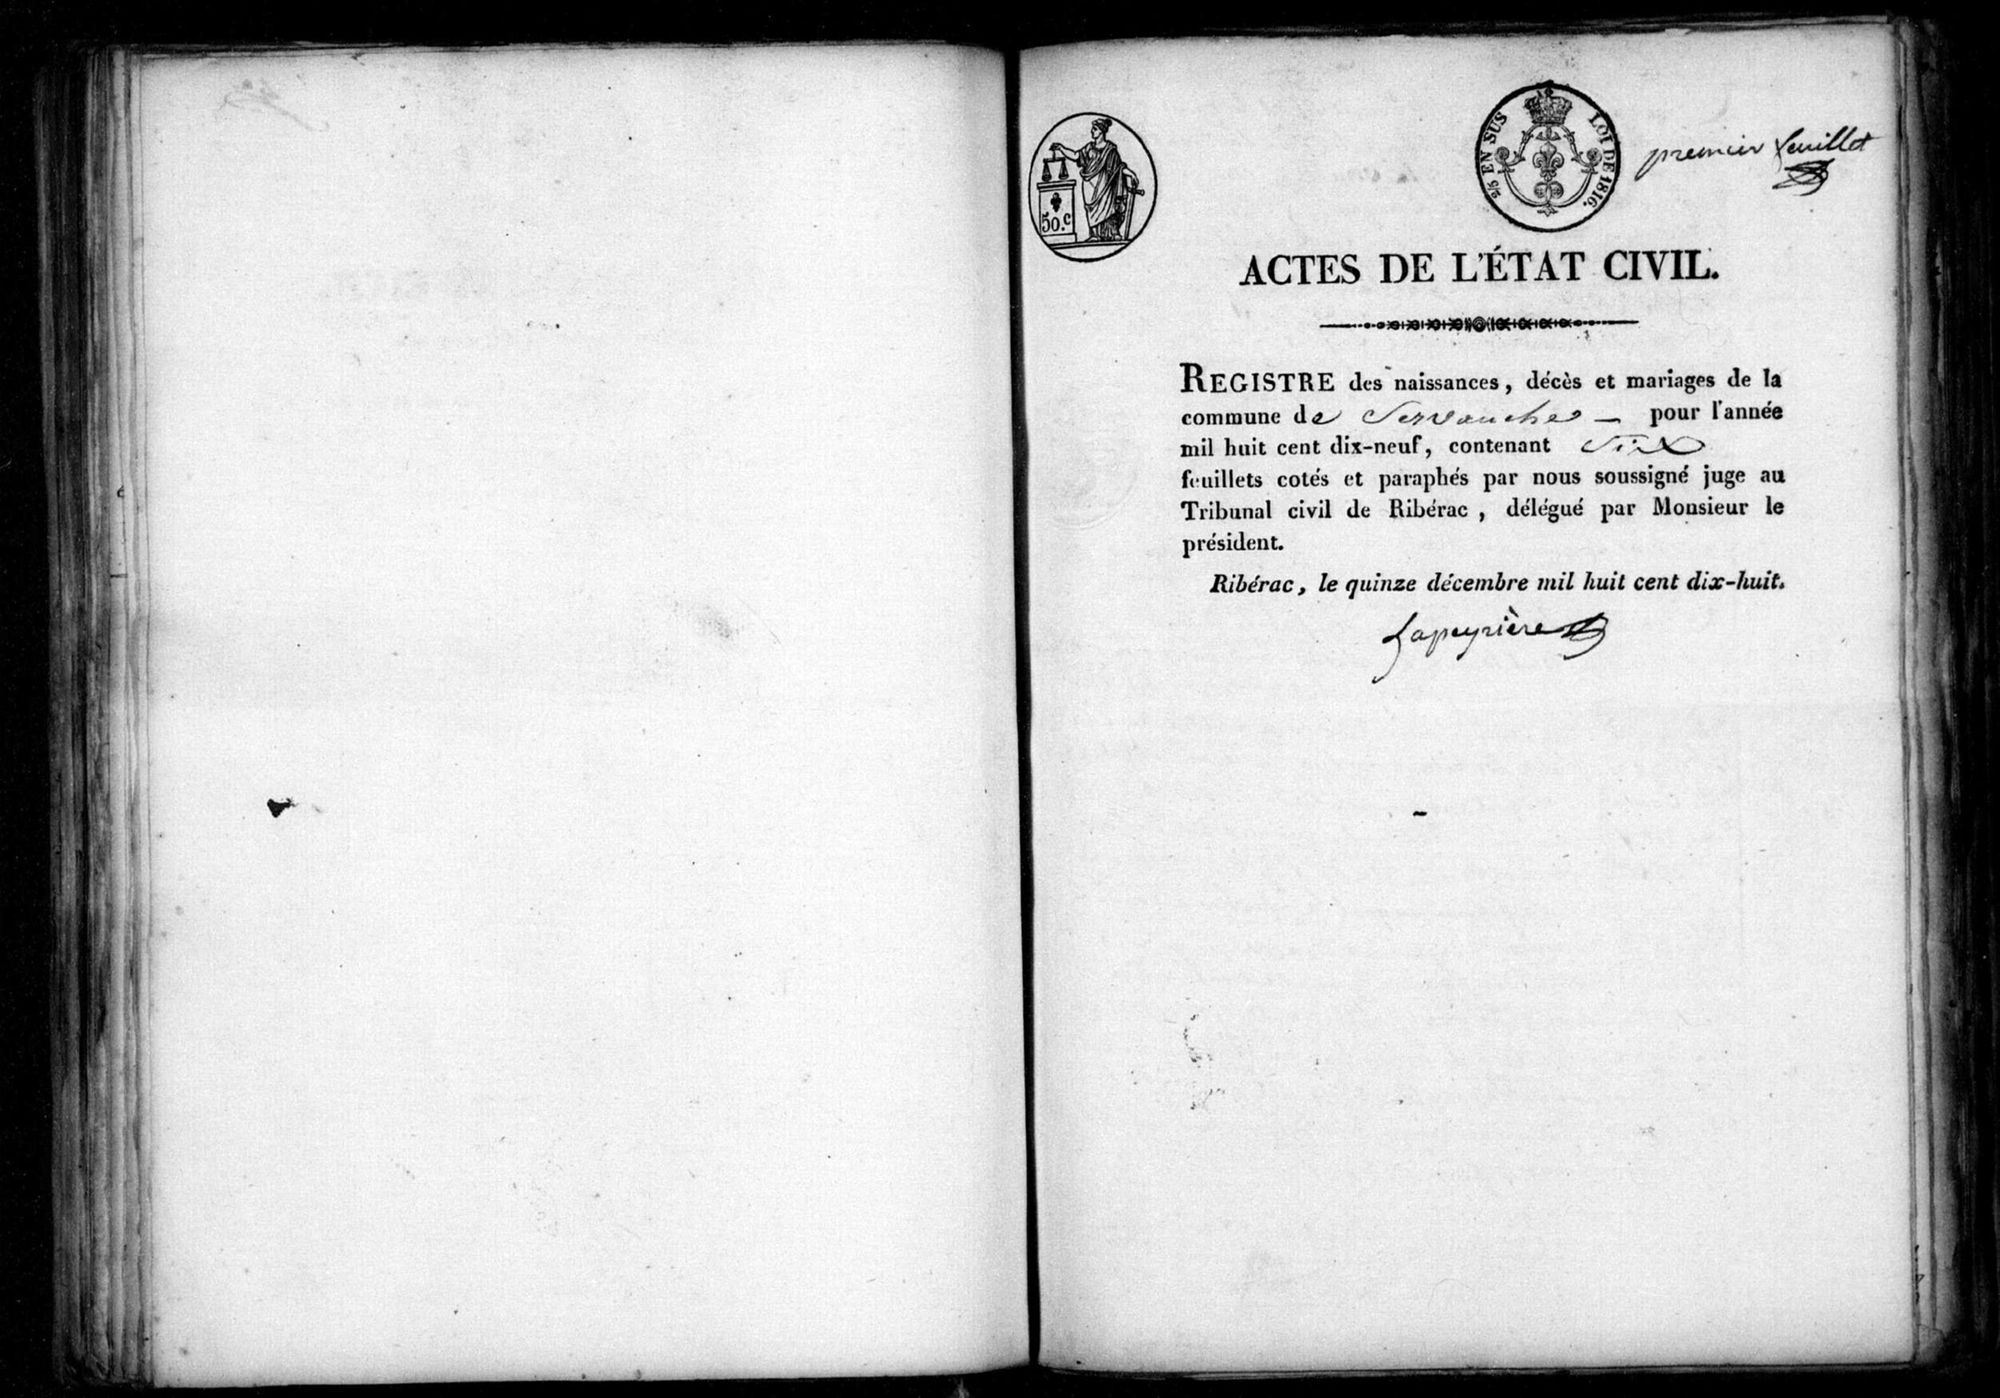 50.c
2/5 EN SUS LOI DE 1816.
premier feuillet
ACTES DE L'ÉTAT CIVIL.
REGISTRE des naissances, décès et mariages de la
commune de Servanches — pour l'année
mil huit cent dix-neuf, contenant Six
feuillets cotés et paraphés par nous soussigné juge au
Tribunal civil de Ribérac, délégué par Monsieur le
président.
Ribérac, le quinze décembre mil huit cent dix-huit.
Lapeyrière